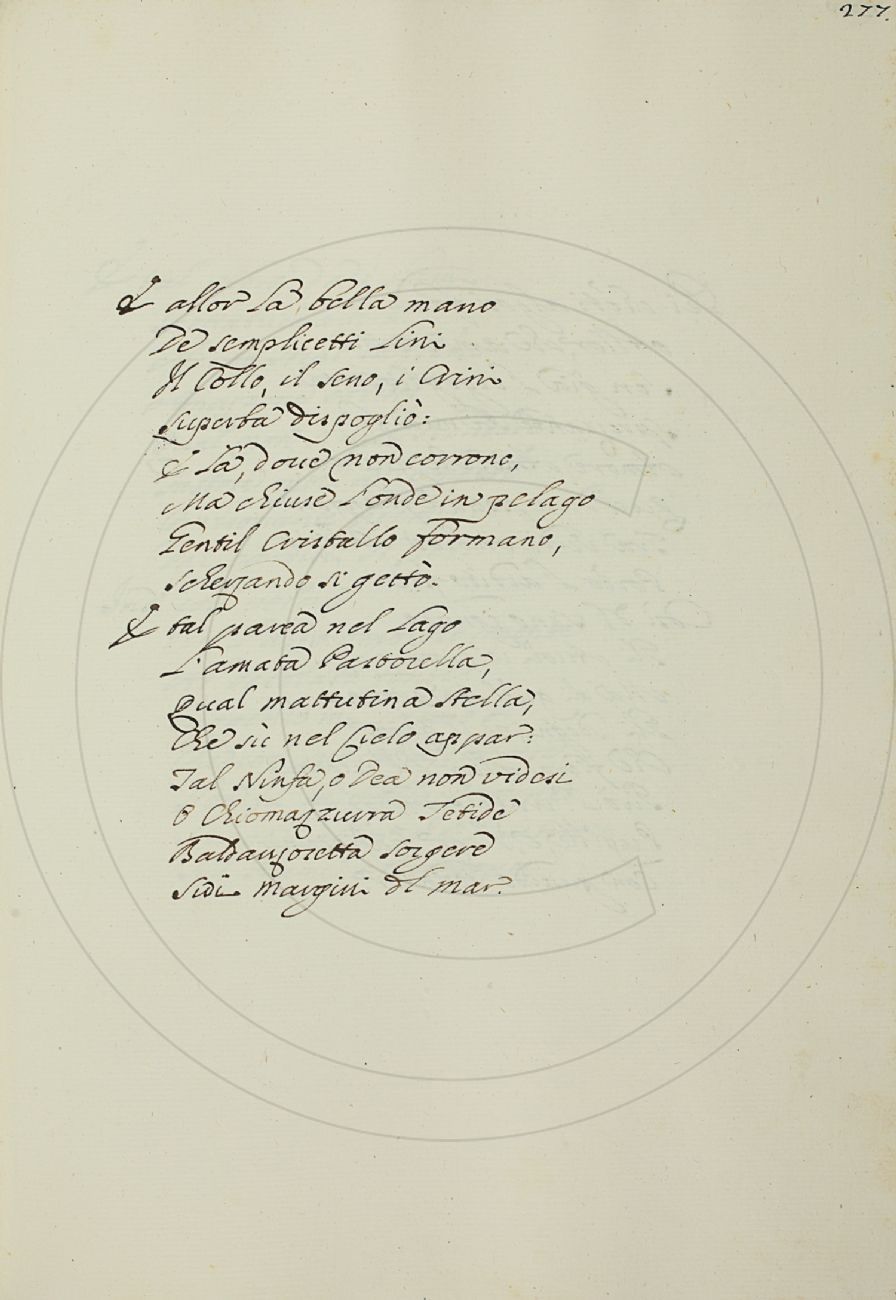 277.
E allor la bella mano
De semplicetti Lini
Il Collo, il seno, i Crini
superba dispogliò:
E là, doue non corrono,
Ma chiuse l'onde in pelago
Gentil Cristallo formano,
scherzando si gettò.
E tal parea nel Lago
L'amata Pastorella,
Qual mattutina stella,
Che sù nel Cielo appar:
Tal Ninfa, o Dea non videsi
O Chiomazzurra Tetide
Baldanzosetta sorgere
Sù i margini del mar.